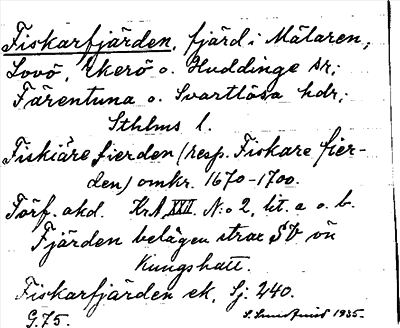 Fiskarfjärden, fjärd i Mälaren,
Lovö, Ekerö o. Huddinge sr;
Färentuna o. Svartlösa hdr;
Sthlms l.
Fiskiäre fierden (resp. Fiskare fier-
den) omkr. 1670-1700.
Förf. akd. Kr.A XXII. N:o 2, lit. a o. b.
Fjärden belägen strax SV om
Kungshatt.
Fiskarfjärden ek, Sj: 240.
G.75. 1935.